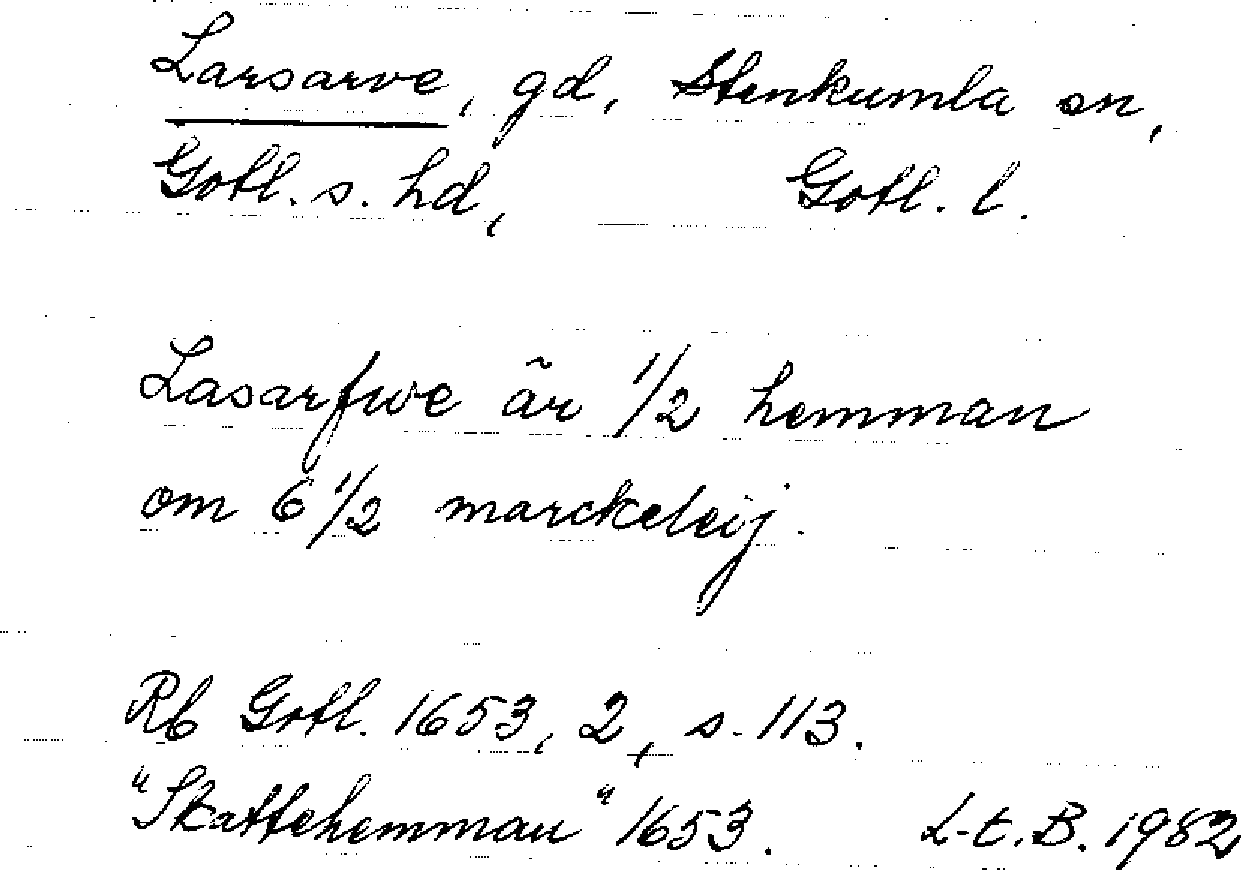 Larsarve, gd, Stenkumla sn,
Gotl. s. hd, Gotl. l.
Lasarfwe är 1/2 hemman
om 6 1/2 marckeleij.
Rb Gotl. 1653, 2, s. 113.
"Skattehemman" 1653. L-E.B. 1982